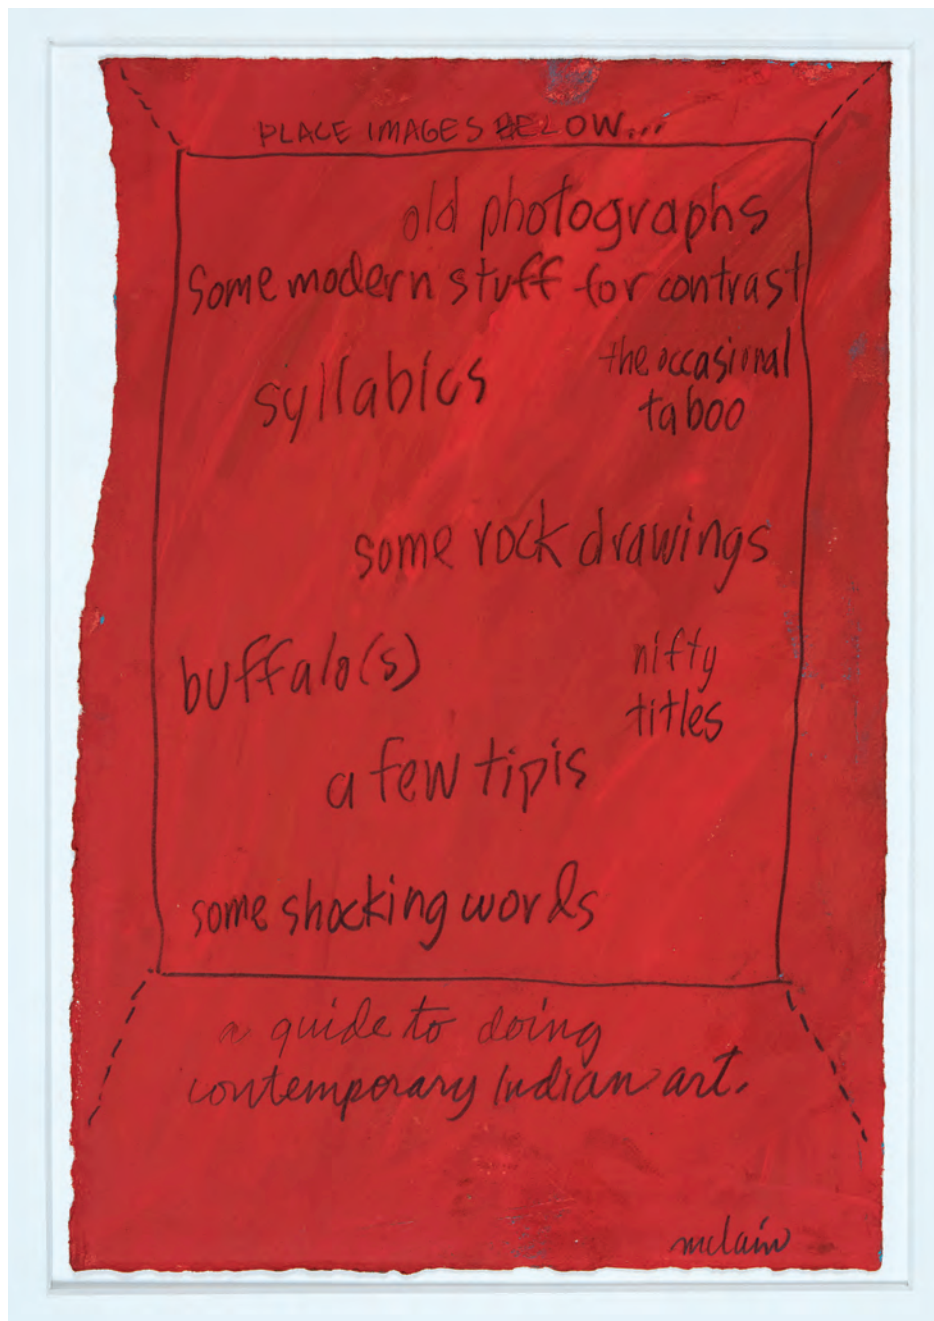 PLACE IMAGES BELOW...
old photographs
Some modern stuff for contrast
syllabics
the occasional
taboo
some rock drawings
buffalo(s)
nifty
titles
a few tipis
some shocking words
a guide to doing
contemporary Indian art.
mclain